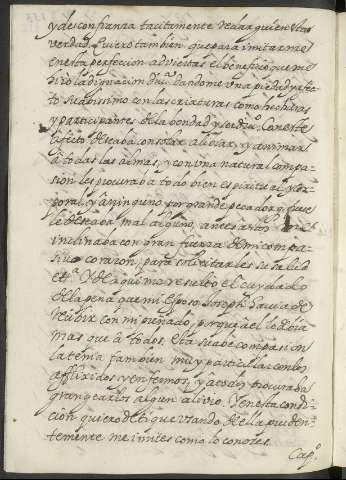 y desconfianza tacitamente redarguien esta
verdad. Quiero tambien que para imitarme
en esta perfeccion adviertas el beneficio que me
hizo la dignacion div.ᵃ dandome una piedad y afe
cto suabissimo con las criaturas como hechuras
y participantes de la bondad y ser div.º Con este
afecto deseaba consolar aliviar, y animar
à todas las almas, y con una natural compa-
sion les procuraba todo bien espiritual y cor-
poral, y à ninguno por grande pecador que fuese
le deseaba mal alguno, antes à estos
inclinaba con gran fuerza de mi compa-
sivo corazon, para solicitarles su salud
et.ᵃ Y de aqui me resultó el cuydado
de la pena que mi Esposo Joseph havia de
recibir con mi preñado, porque à el le debia
mas que à todos. Esta suabe compasion
la tenia tambien muy particular con los
afligidos y enfermos, y à todos procuraba
grangearles algun alivio. Y en esta condi-
cion quiero de ti que usando de ella pruden-
temente me imites como lo conoces.
Cap.º